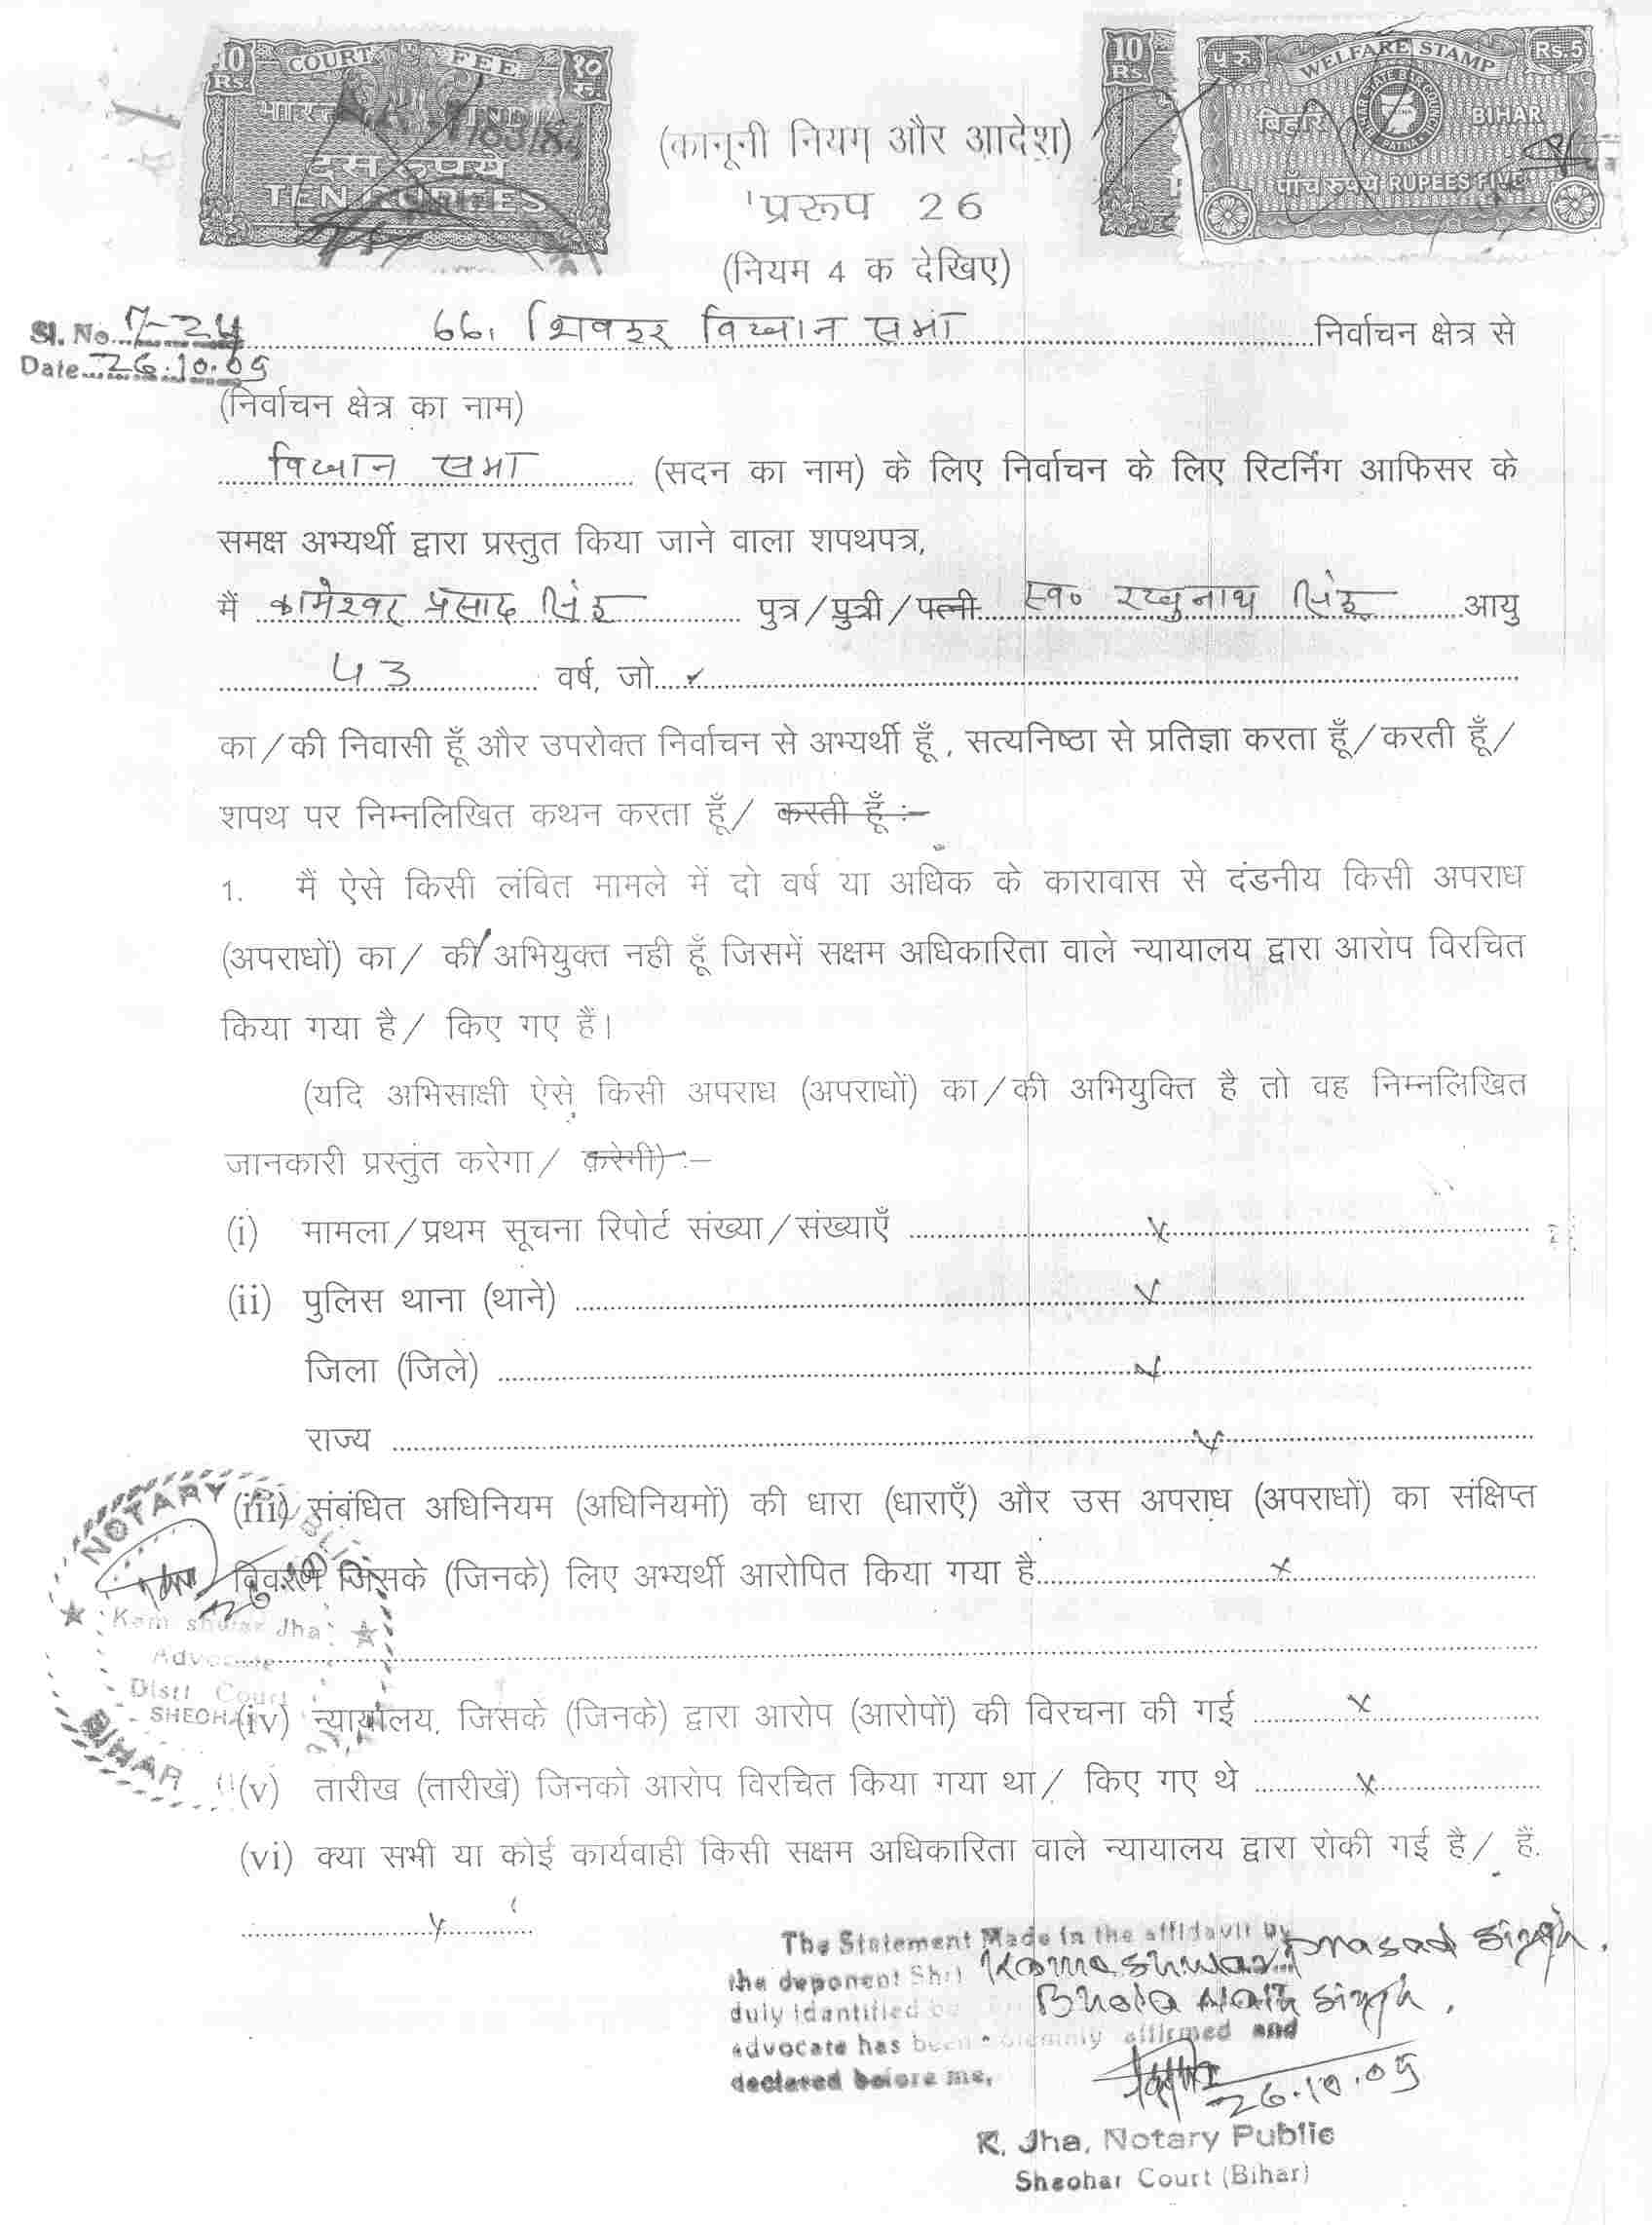 10 Rs. COURT FEE १० रु.
भारत INDIA
दस रुपये
TEN RUPEES
10 Rs.
प रु. WELFARE STAMP Rs.5
BIHAR STATE BAR COUNCIL PATNA
बिहार BIHAR
पाँच रुपये RUPEES FIVE
(कानूनी नियम और आदेश)
'प्ररूप 26
(नियम 4 क देखिए)
Sl. No. 7-24
Date 26.10.05
66, शिवहर विधान सभा निर्वाचन क्षेत्र से
(निर्वाचन क्षेत्र का नाम)
विधान सभा (सदन का नाम) के लिए निर्वाचन के लिए रिटर्निंग आफिसर के
समक्ष अभ्यर्थी द्वारा प्रस्तुत किया जाने वाला शपथपत्र,
मैं कामेश्वर प्रसाद सिंह पुत्र/पुत्री/पत्नी स्व० रघुनाथ सिंह आयु
43 वर्ष, जो
का/की निवासी हूँ और उपरोक्त निर्वाचन से अभ्यर्थी हूँ, सत्यनिष्ठा से प्रतिज्ञा करता हूँ/करती हूँ/
शपथ पर निम्नलिखित कथन करता हूँ/ करती हूँ :-
1. मैं ऐसे किसी लंबित मामले में दो वर्ष या अधिक के कारावास से दंडनीय किसी अपराध
(अपराधों) का/ की अभियुक्त नही हूँ जिसमें सक्षम अधिकारिता वाले न्यायालय द्वारा आरोप विरचित
किया गया है/ किए गए हैं।
(यदि अभिसाक्षी ऐसे किसी अपराध (अपराधों) का/की अभियुक्ति है तो वह निम्नलिखित
जानकारी प्रस्तुत करेगा/ करेगी) :-
(i) मामला/प्रथम सूचना रिपोर्ट संख्या/संख्याएँ x
(ii) पुलिस थाना (थाने) x
जिला (जिले) x
राज्य x
(iii) संबंधित अधिनियम (अधिनियमों) की धारा (धाराएँ) और उस अपराध (अपराधों) का संक्षिप्त
विवरण जिसके (जिनके) लिए अभ्यर्थी आरोपित किया गया है x
(iv) न्यायालय, जिसके (जिनके) द्वारा आरोप (आरोपों) की विरचना की गई x
(v) तारीख (तारीखें) जिनको आरोप विरचित किया गया था/ किए गए थे x
(vi) क्या सभी या कोई कार्यवाही किसी सक्षम अधिकारिता वाले न्यायालय द्वारा रोकी गई है/ हैं.
x
NOTARY PUBLIC
Jha
Advocate
Distt Court
SHEOHAR
BIHAR
The Statement Made in the affidavit by
the deponent Shri Kameshwar prasad Singh.
duly identified by Bhola Nath Singh.
advocate has been solemnly affirmed and
declared before me.
26.10.05
K. Jha, Notary Public
Sheohar Court (Bihar)